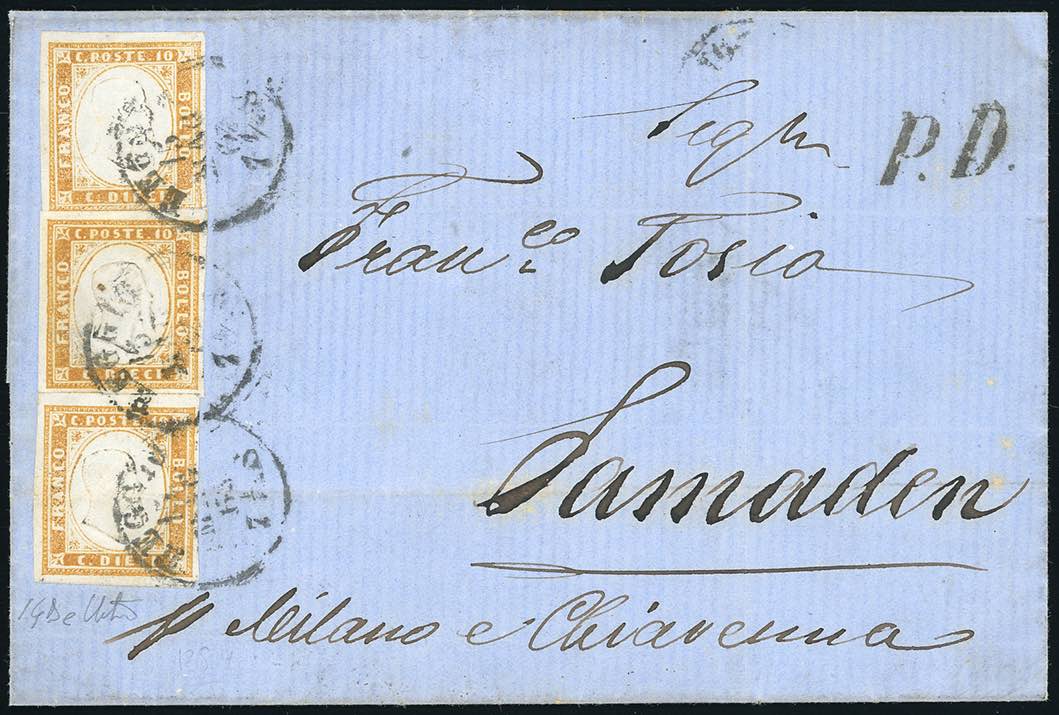 C. POSTE 10
FRANCO
BOLLO
C. DIECI
C. POSTE 10
FRANCO
BOLLO
C. DIECI
C. POSTE 10
FRANCO
BOLLO
C. DIECI
P. D.
Sigr
Franco Tosio
Samaden
p Milano e Chiavenna